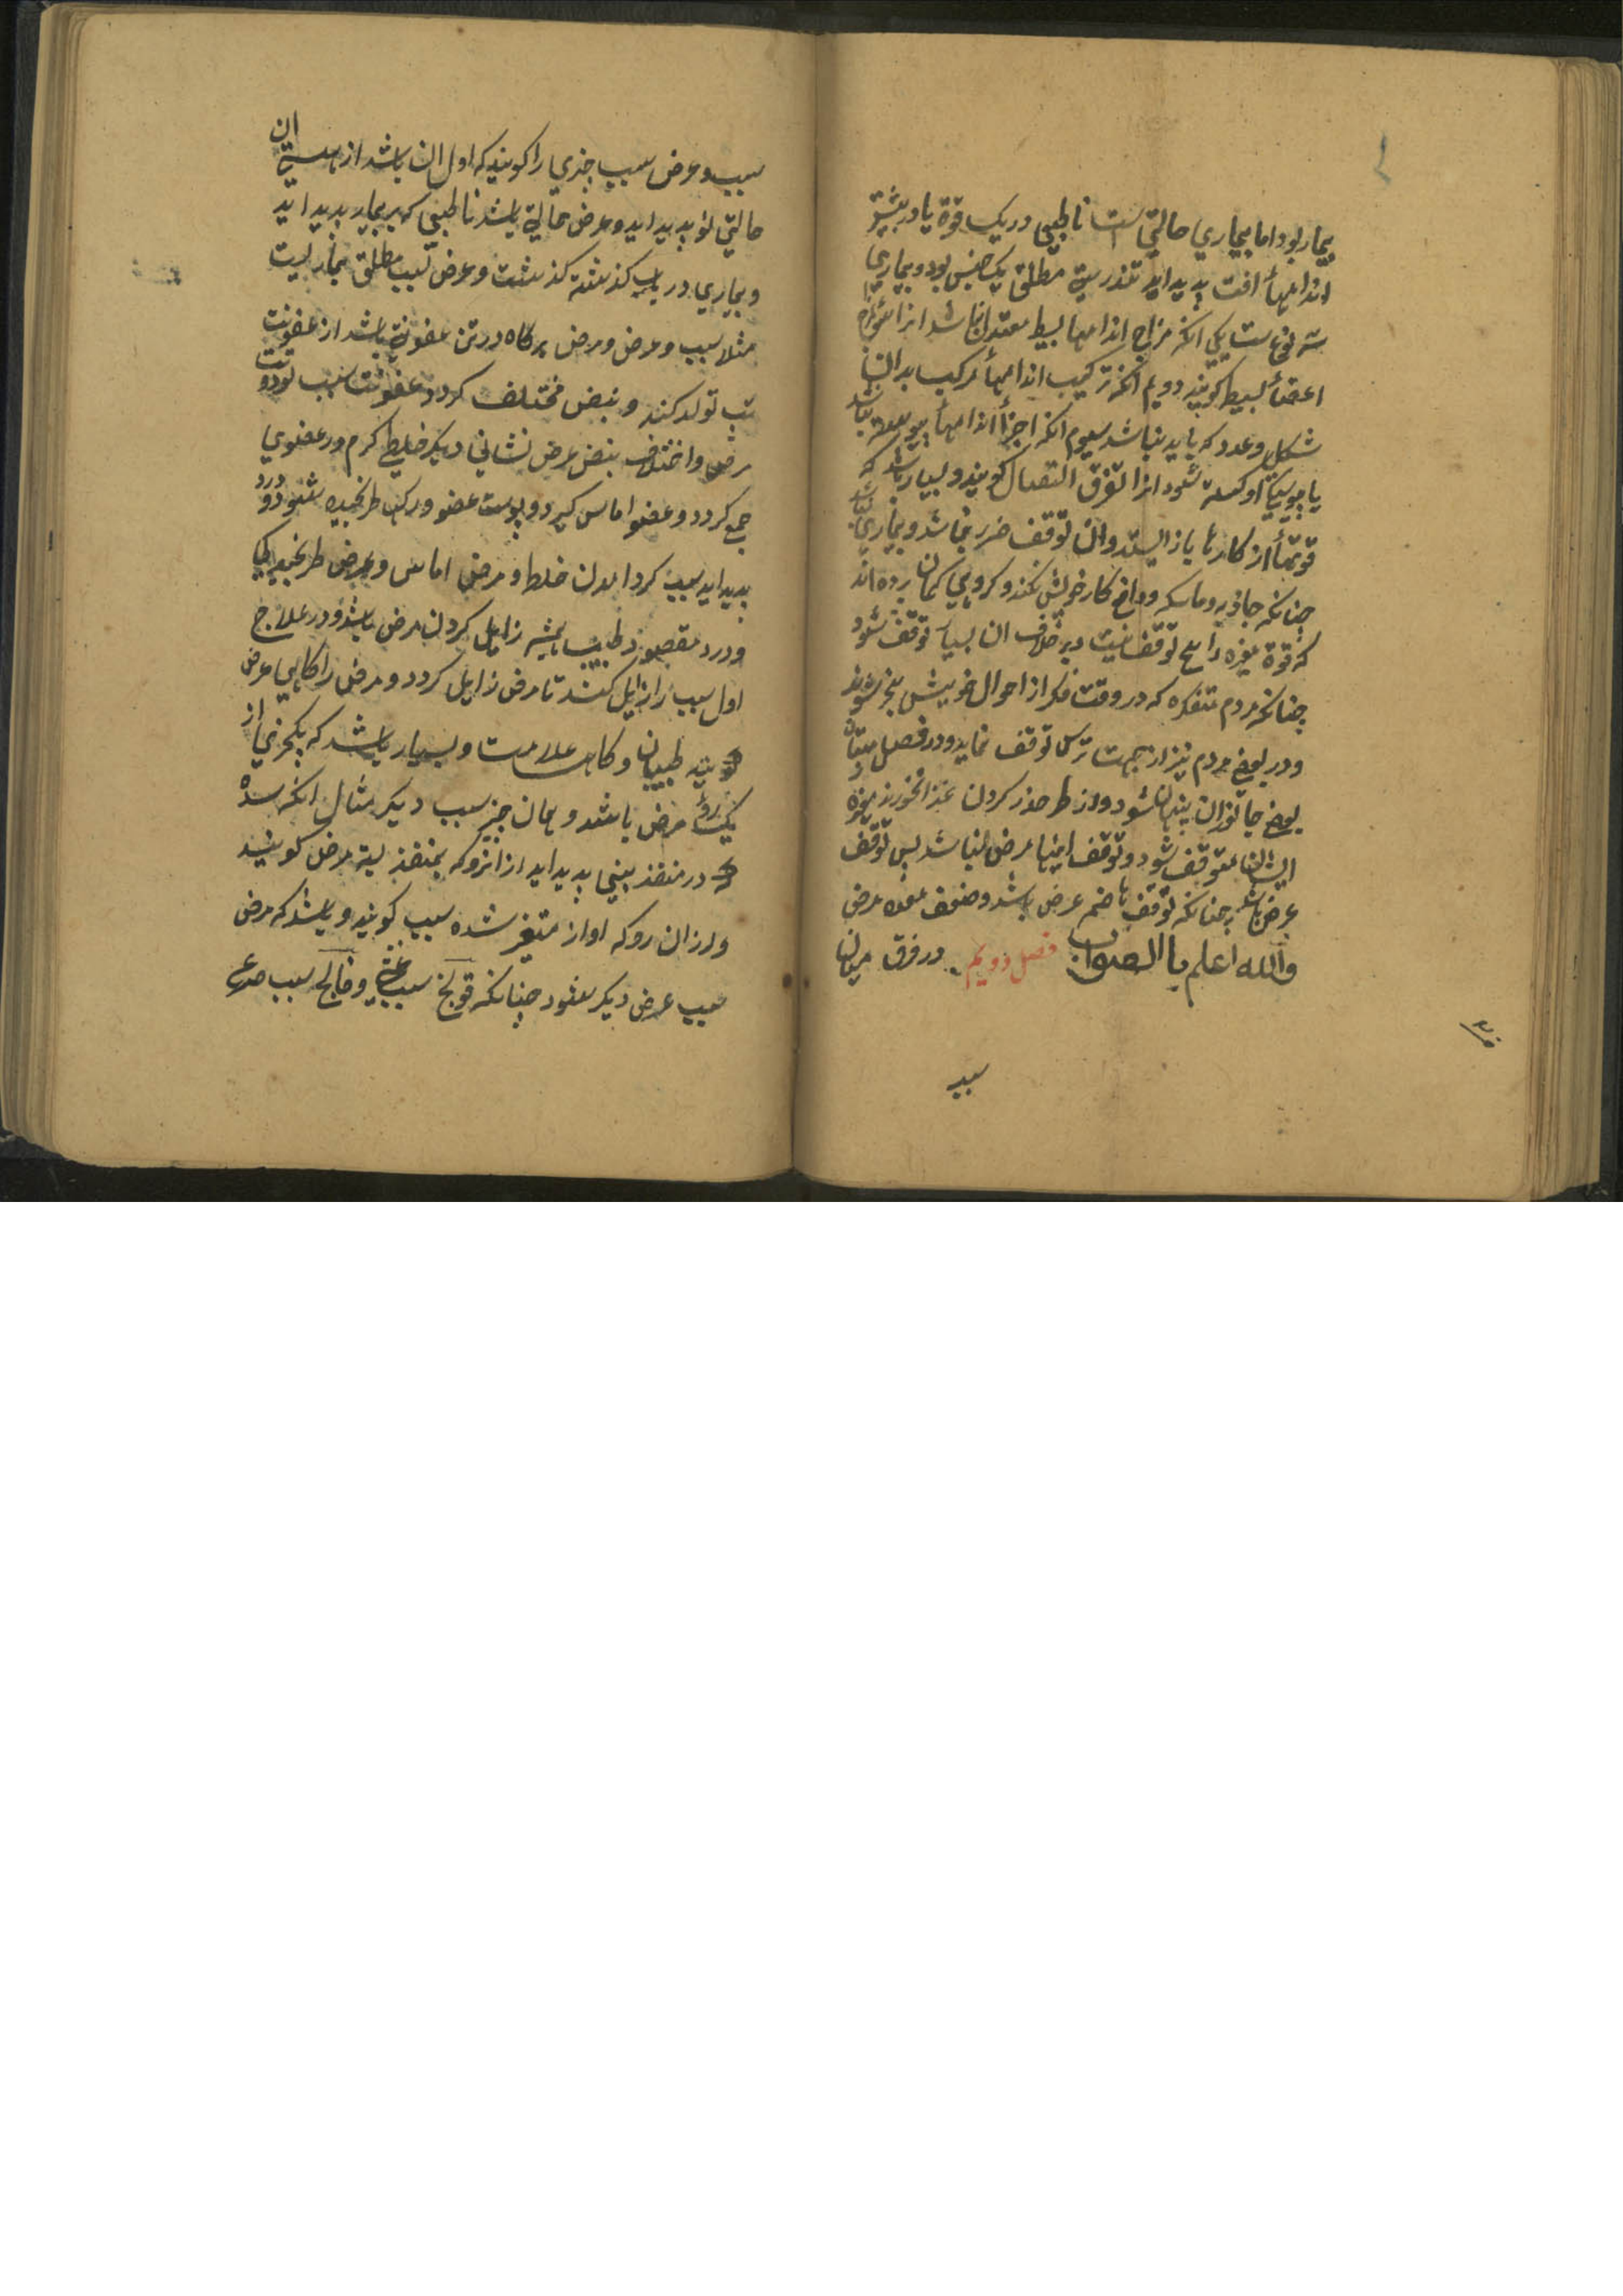 بیمار بود اما بیماري حالتي است نا طبیعي در یک قوة یا در بیشتر
اندامها أفت پدید اید تندرستي مطلق یک جنس بود و بیماري
سه نوعست یکي انکه مزاج اندامها بسیط معتدل نباشد انرا سوء مزاج
اعضأ بسیط کویند دویم انکه ترکیب اندامهأ مرکب بدان
شکل و عدد که باید نباشد سیوم انکه اجزأ اندامهأ پیوسته نباشد
یا پیوستکي او کسسته شود انرا تفرق التصال کویند و بسیار باشد که
قوتهأ از کارها باز ایستد و ان توقف ضرر نباشد و بیماري نباشد
چنانکه جاذبه و ماسکه و دافع کار خویش نکند و کروهي کمان برده اند
که قوة غیره را هیچ توقف نیست و بر خلاف ان بسیار توقف شود
چنانکه مردم متفکره که در وقت فکر از احوال خویش بیخبر شوند
و در بعضي مردم نیز از جهت ترس توقف نماید و در فصل زمستان
بعضي جانوران پنهان شود و از خطر حذر کردن غذا نخورند و غیره
ایشان متوقف شود و توقف اینها مرض نباشد پس توقف
عرض باشد چنانکه توقف هاضم عرض باشد و ضعف معده مرض
والله اعلم باالصواب فصل دویم در فرق میان
سبب
سبب و عرض سبب چیزي را کویند که اول ان باشد از هستي ان
حالتي نو پدید اید و مرض حالتي باشد نا طبیعي که بر بیمار پدید اید
و بیماري در باب کذشته کذشت و عرض سبب مطلق بیماریست
مثلا سبب و عرض و مرض هرکاه در تن عفونتي باشد از عفونت
تب تولد کند و نبض مختلف کردد عفونت سبب بود و تب
مرض و اختلاف نبض عرض نشاني دیکر خلطي کرم در عضوي
جمع کردد و عضو اماس کیرد و پوست عضو و رکها ترنجیده شود و درد
پدید اید سبب کرد امدن خلط و مرض اماس و عرض ترنجیدکي
و درد مقصود طبیب همیشه زایل کردن مرض باشد و در علاج
اول سبب را زایل کنند تا مرض زایل کردد و مرض را کاهي عرض
کویند طبیبان و کاهي علامت و بسیار باشد که یکچیزي از
یک روي مرض باشد و همان چیز سبب دیکر مثال انکه سده
که در منفذ بیني پدید اید از انرو که منفذ بسته مرض کویند
و از ان رو که اواز متغیر شده سبب کویند و باشد که مرض
سبب عرض دیکر شود چنانکه قولنج سبب غشي و فالج سبب صرع